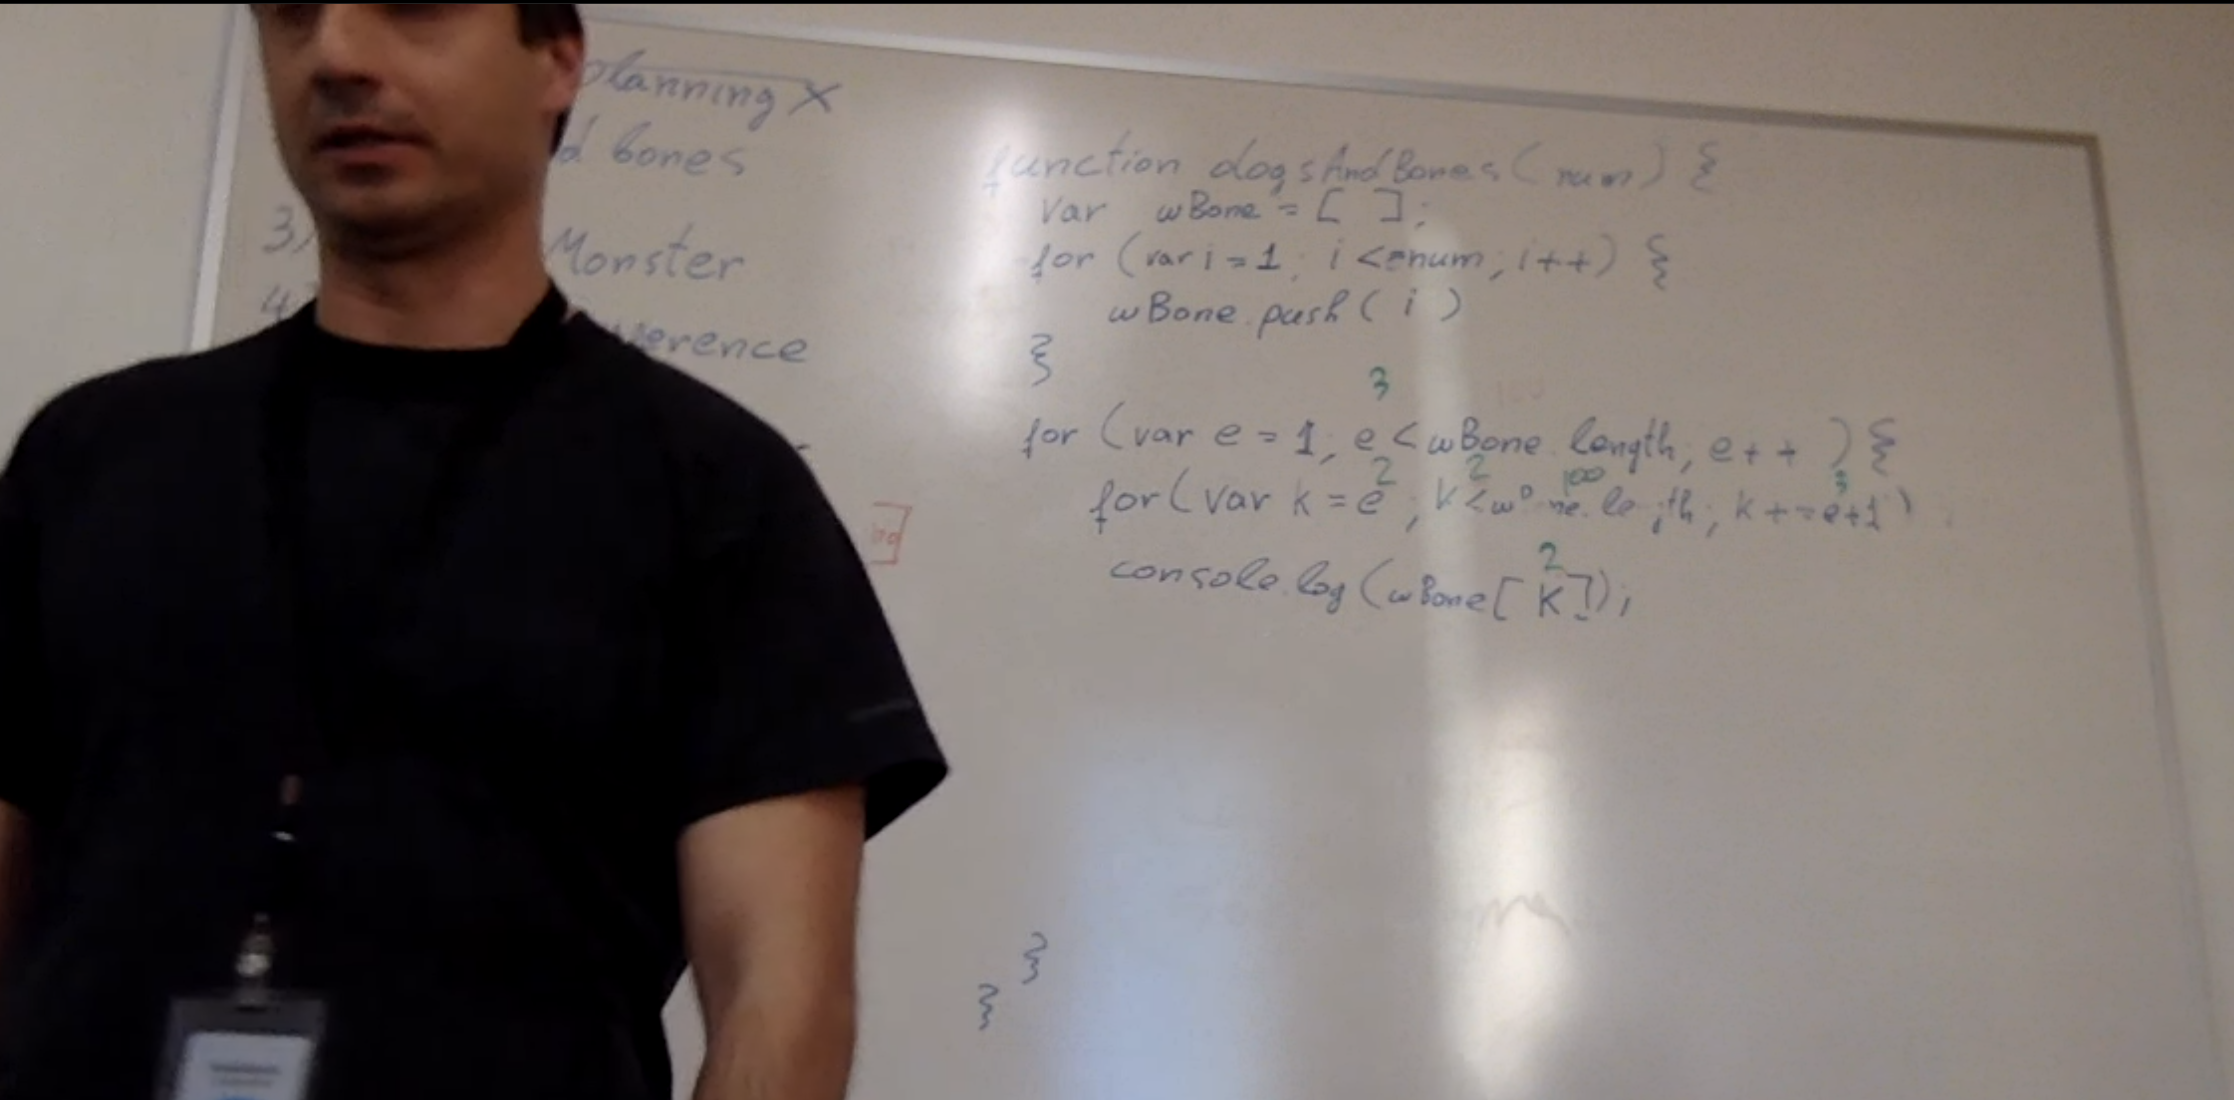 planning X
d bones
3)
Monster
4
erence
function dogsAndBones(num) {
var wBone = [ ];
for (var i = 1; i <= num; i++) {
wBone.push( i )
}
3
for (var e = 1; e < wBone.length; e++ ) {
2 2 100 3
for(var k = e; k < w ne.le th; k += e+1)
2
console.log(wBone[k]);
}
}